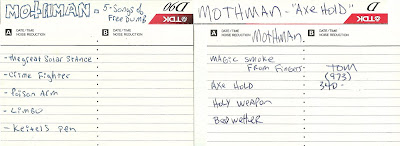 MOTHMAN - 5-Songs of
Free Dumb
TDK
D90
A DATE/TIME NOISE REDUCTION B DATE/TIME NOISE REDUCTION
- the great Solar Stance
- Crime Fighter
- Poison Arm
- Limbo
- Keitels Pen
MOTHMAN - "AXE HOLD"
TDK
D
A DATE/TIME NOISE REDUCTION B DATE/TIME NOISE REDUCTION
MOTHMAN.
MAGIC SMOKE
FROM FINGERS
TOM
(973)
340-
AXE HOLD
HOLY WEAPON